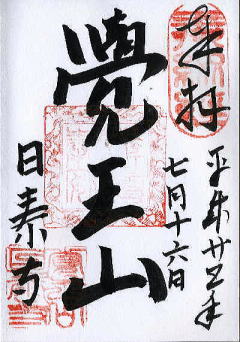 奉拝
平成廿五年
七月十六日
覺王山
日泰寺